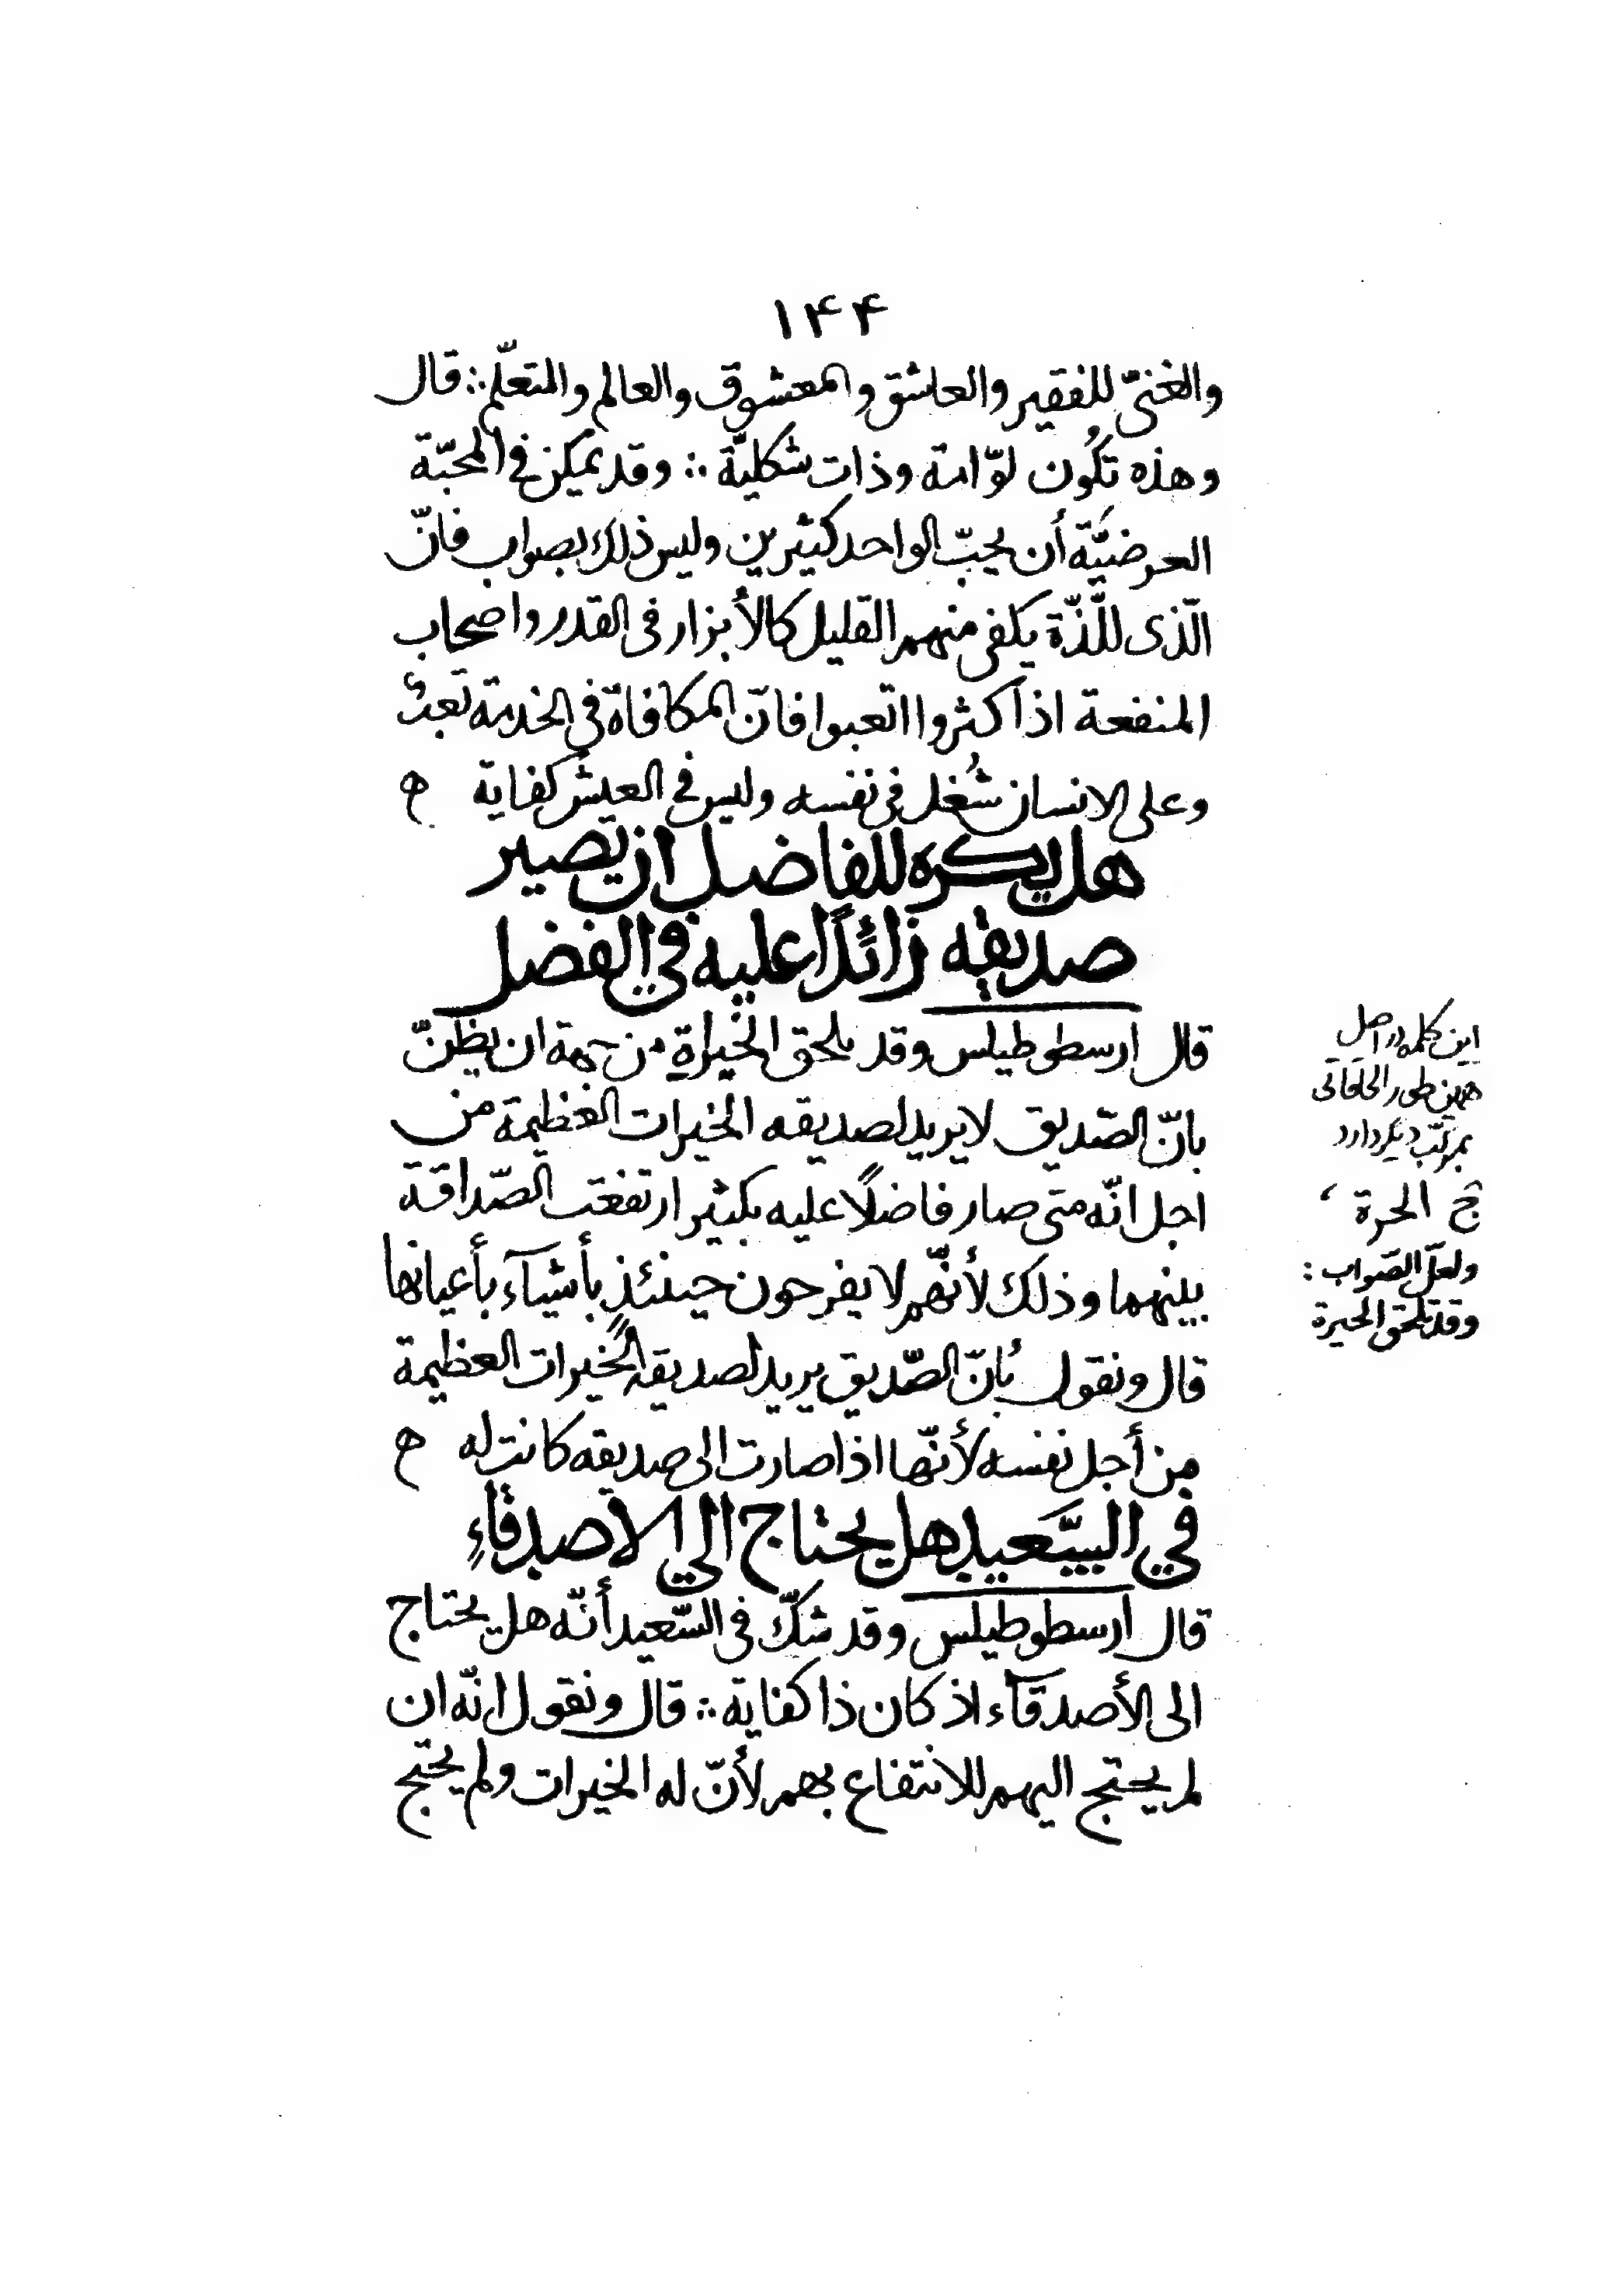 ١۴۴
والغنىّ للفقير والعاشق والمعشوق والعالم والمتعلّم ∴ قال
وهذه تكون لوّامة وذات شكليّة ∴ وقد يمكن في المحبّة
العرضيّة أن يحبّ الواحد كثيرين وليس ذلك بصواب فانّ
الّذى للّذّة يكفى منهم القليل كالأبزار فى القدر واصحاب
المنفعة اذا كثروا اتعبوا فانّ المكافاة في الخدمة تعب
وعلى الانسان شُغل في نفسه وليس في العيش كفاية ه
هل يكره للفاضل ان يصير
صديقه زائدًا عليه في الفضل
قال ارسطوطيلس وقد يلحق الخيراة من جهة ان يظنّ
بانّ الصّديق لا يريد لصديقه الخيرات العظيمة من
اجل انّه متى صار فاضلًا عليه بكثير ارتفعت الصّداقة
بينهما وذلك لأنّهم لا يفرحون حينئذٍ بأشيآء بأعيانها
قال ونقول بأنّ الصّديق يريد لصديقه الخيرات العظيمة
من أجل نفسه لأنّها اذا صارت الى صديقه كانت له ه
في السَّعيد هل يحتاج الي الاصدقاءِ
قال ارسطوطيلس وقد شكّ فى السّعيد أنّه هل يحتاج
الى الأصدقآء اذ كان ذا كفاية ∴ قال ونقول انّه ان
لم يحتج اليهم للانتفاع بهم لأنّ له الخيرات ولم يحتج
اين كلمه در اصل
همين طور الحاقاتى
بمركّب ديگر دارد
ج الحرة ،
ولعلّ الصّواب :
وقد تلحق الحيرة